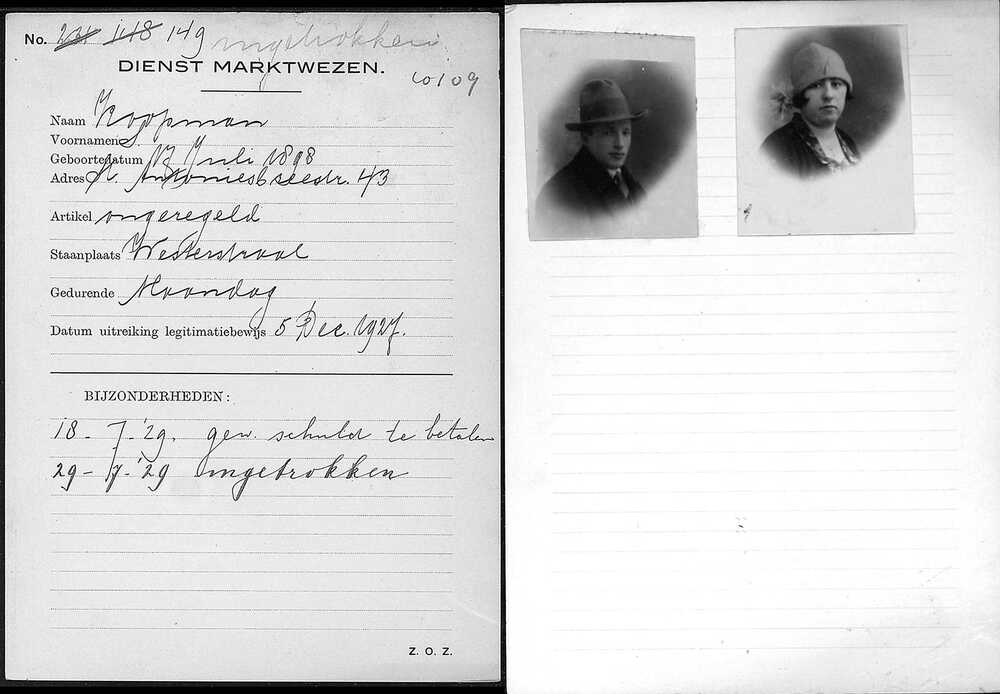 No. 149 ingetrokken
DIENST MARKTWEZEN.
60109
Naam Koopman
Voornamen S.
Geboortedatum 17 Juli 1898
Adres St. Antoniesbreestr. 43
Artikel ongeregeld
Staanplaats Westerstraat
Gedurende Maandag
Datum uitreiking legitimatiebewijs 5 Dec. 1927.
BIJZONDERHEDEN:
18-7-'29. gew. schuld te betalen
29-7-'29 ingetrokken
Z. O. Z.